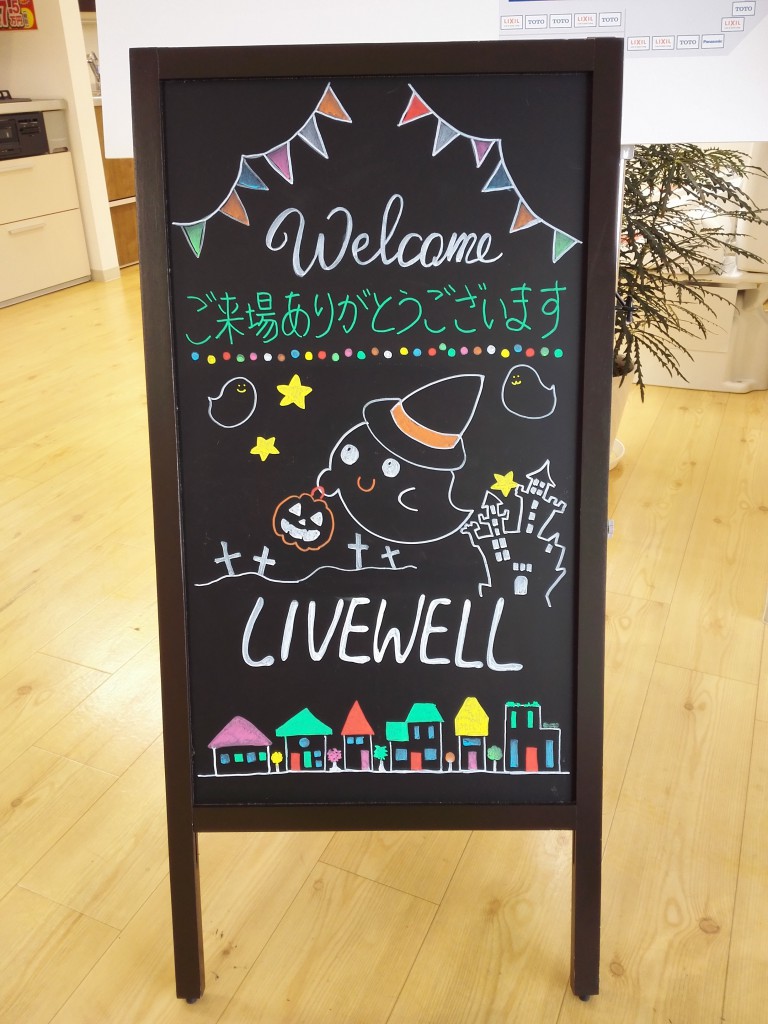 7.5
万円
LIXIL TOTO TOTO LIXIL TOTO
TOTO
LIXIL LIXIL TOTO Panasonic
Welcome
ご来場ありがとうございます
LIVEWELL